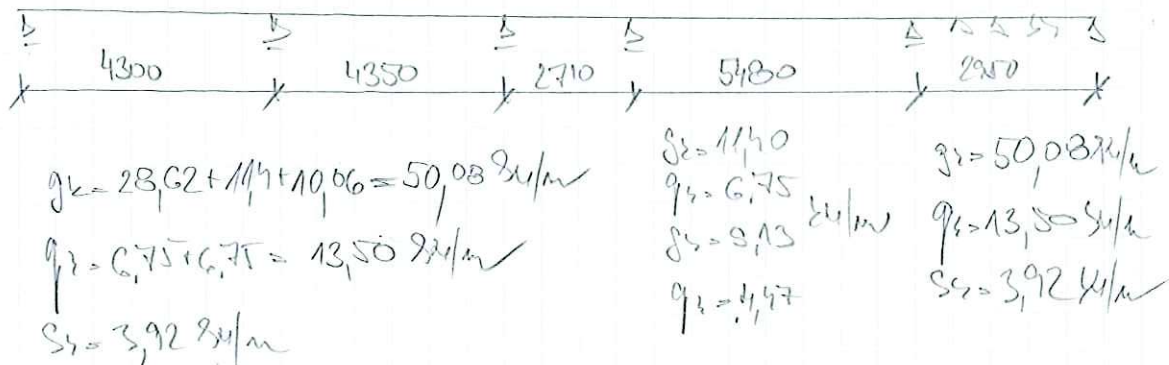 4300 4350 2710 5480 2950
gk= 28,62+11,4+10,06=50,08 kN/m
qk= 6,75+6,75= 13,50 kN/m
Sk= 3,92 kN/m
gk= 11,40
qk= 6,75
gk= 9,13 kN/m
qk= 4,47
gk= 50,08 kN/m
qk= 13,50 kN/m
Sk= 3,92 kN/m